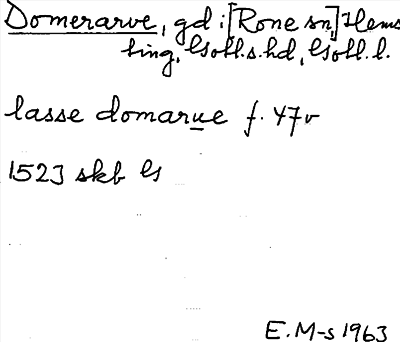 Domerarve, gd i [Rone sn,] Hems
ting, Gotl.s.hd, Gotl.l.
lasse domarue f. 47v
1523 skb G
E. M-s 1963